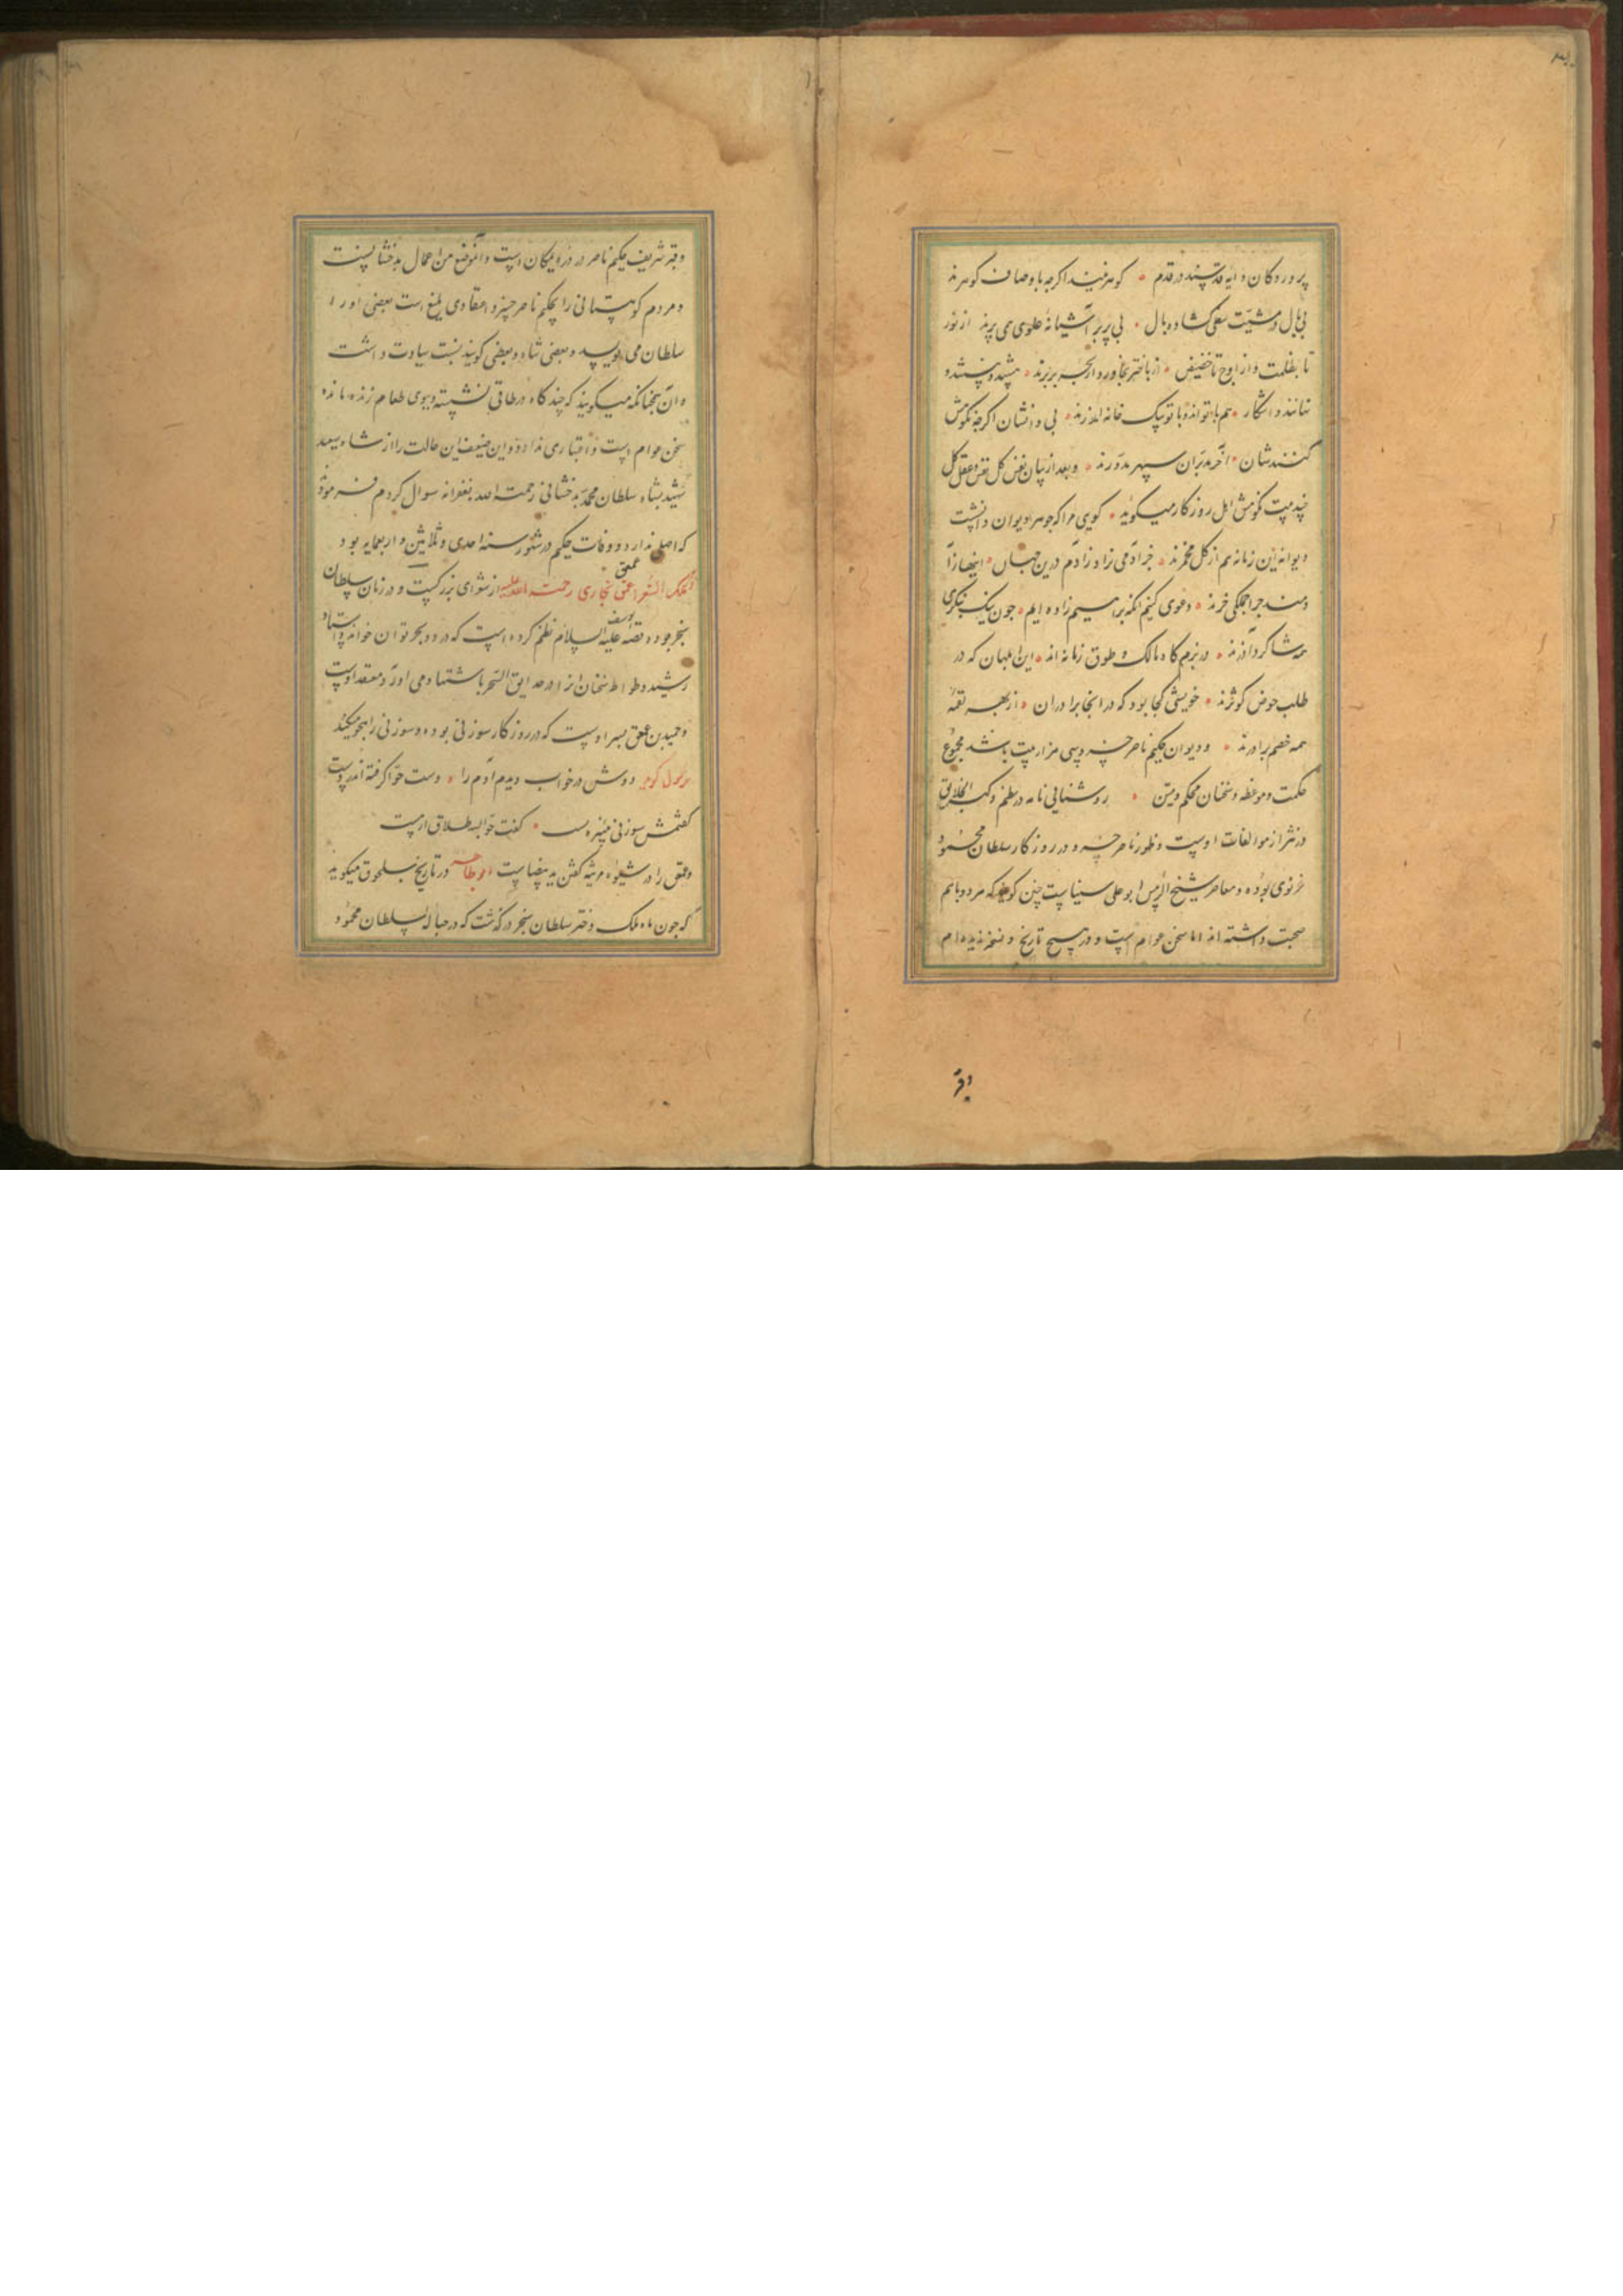 پروردگان دایه قدسند در قدم ۰ گوهر نیند اگرچه باوصاف گوهرند
بی بال در مشیت سفلی گشاده بال ۰ بی پر بر آشیانه علوی می پرند از نور
تا بظلمت و از اوج تا حضیض ۰ از باختر بخاور و از بحر بربرند ۰ هستند و نیستند و
نهانند و اشکار ۰ هم با تواند و با تو بیک خانه اندرند ۰ بی دانشان اگرچه نکوهش
کنندشان ۰ آخر مدبران سپهر مدورند ۰ و بعد از بیان نفس کل و عقل کل
چند بیت نکوهش اهل روزگار میگوید ۰ گویی مرا که جوهر دیوان ز آتشست
دیوانه این زمانه هم از کل مخمرند ۰ جز آدمی نزاد ز آدم درین جهان ۰ اینها ز آدمند
چرا جملگی خرند ۰ دعوی کنم انکه براهیم زاده ایم ۰ چون نیک بنگری
همه شاگرد آذرند ۰ در بزم گاه مالک و طوق زمانه اند ۰ این ابلهان که در
طلب حوض کوثرند ۰ خویشی کجا بود که در انجا برادران ۰ از بهر لقمه
همه خصم برادرند ۰ و دیوان حکیم ناصر خسرو سی هزار بیت باشد مجموع
حکمت و موعظه و سخنان محکم و متین ۰ روشنایی نامه در نظم و کنز الحقایق
در نثر از موالفات اوست و ظهور ناصر خسرو در روزگار سلطان محمود
غزنوی بوده و معاصر شیخ الرییس ابو علی سیناست چنین گویند که هر دو با هم
صحبت داشته اند اما سخن عوام است و در هیچ تاریخ و نسخه ندیده ام
وقبر
وقبر شریف حکیم ناصر در دره یمکان است و آن موضع من اعمال بدخشانست
و مردم کوهستانی را بحکیم ناصر خسرو اعتقادی بلیغ است بعضی او را
سلطان می نویسد و بعضی شاه و بعضی گویند نسبت سیادت داشت
و آن سخنانکه میگویند که چند گاه در طاقی نشسته و ببوی طعام زنده مانده
سخن عوام است و اعتباری ندارد و این ضعیف این حالت را از شاه سعید
شهید شاه سلطان محمد بدخشانی رحمت الله بغفرانه سوال کردم فرمود
که اصل ندارد و وفات حکیم در شهور سنه احدی و ثلاثین و اربعمایه بود
ذکر ملک الشعرا عمعق بخاری رحمت الله علیه از شعرای بزرگست و در زمان سلطان
سنجر بوده و قصه یوسف علیه السلام نظم کرده است که در دو بحر توان خواند و استاد
رشید وطواط سخنان او را در حدایق السحر باستشهاد می آورد و معتقد اوست
و حمید بن عمعق پسر اوست که در روزگار سوزنی بوده و سوزنی را هجو میکند
دوش در خواب دیدم آدم را ۰ دست حوا گرفته اندر دست
گفتمش سوزنی نبیره تست ۰ گفت حوا بسه طلاق ار هست
و عمعق را در شیوه مرثیه گفتن ید بیضاست ابوطاهر در تاریخ سلجوق میگوید
که چون ماه ملک دختر سلطان سنجر درگذشت که در حباله سلطان محمود